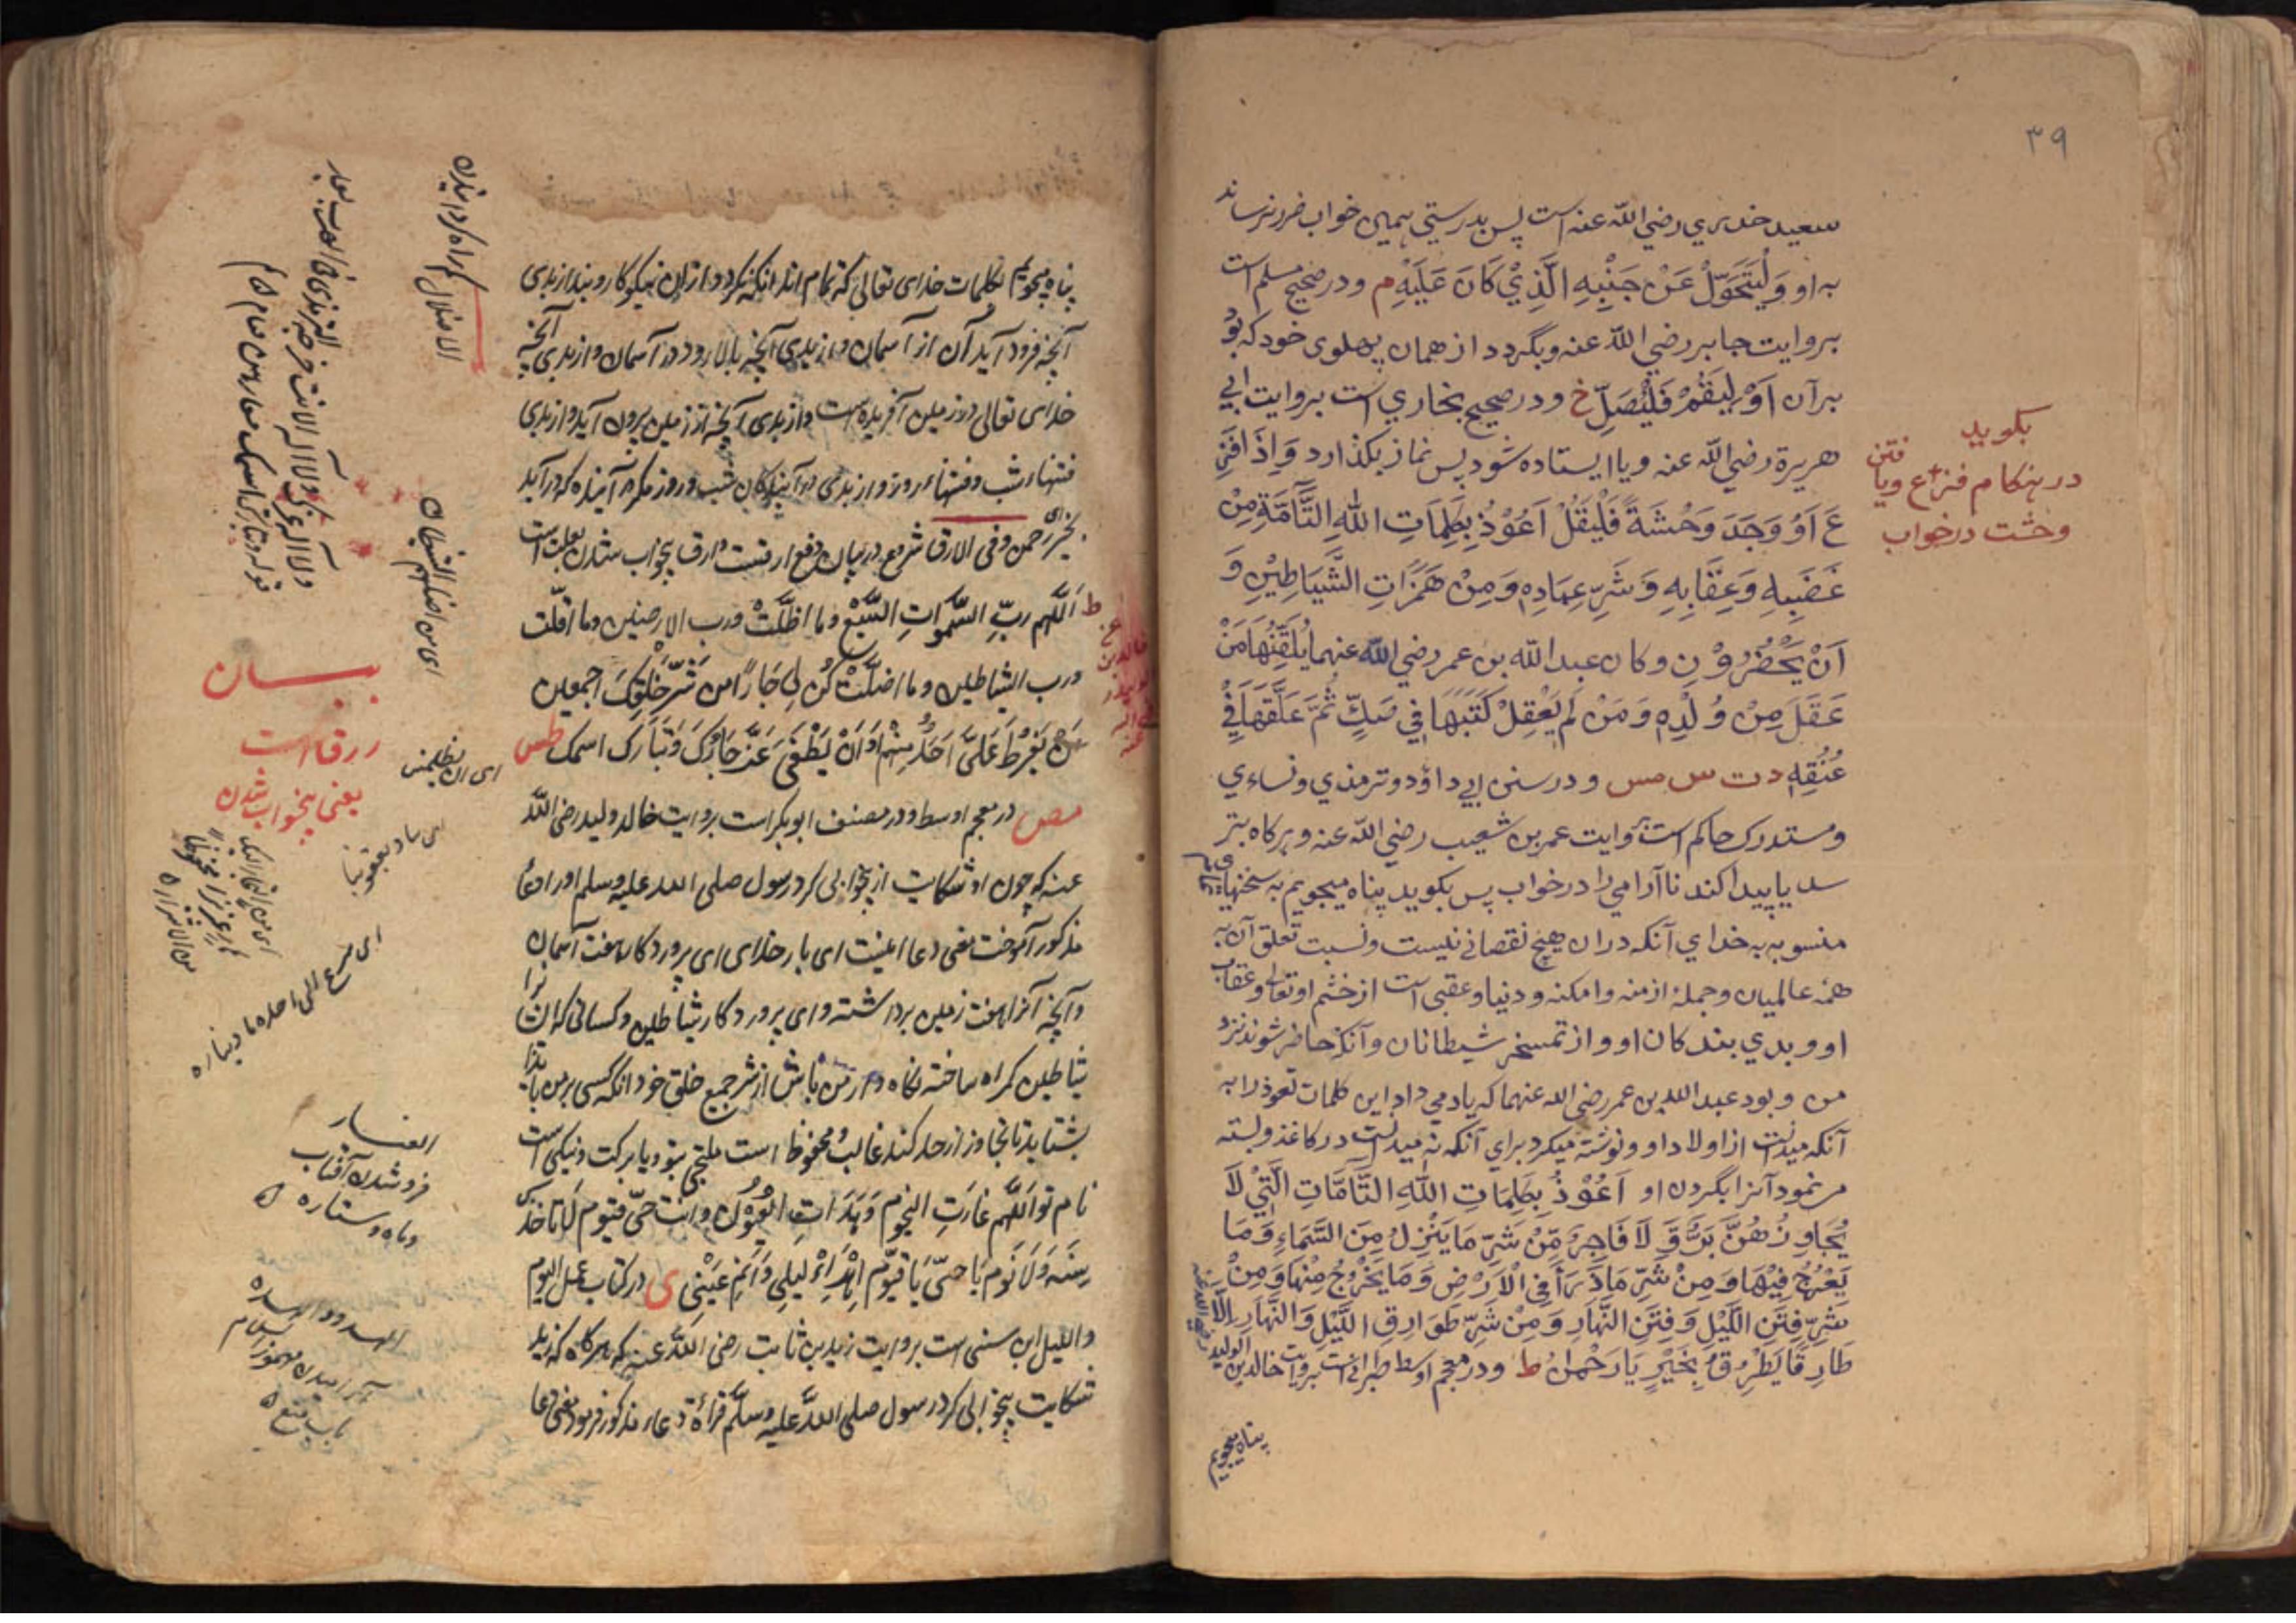 ۳۹
سعيد خدري رضي الله عنه است پس بدرستي همين خواب ضرر نرساند
به او وَلْيَتَحَوَّلْ عَنْ جَنْبِهِ الَّذِيْ كَانَ عَلَيْهِ م ودر صحيح مسلم است
بروايت جابر رضي الله عنه وبگردد از همان پهلوى خود كه بود
برآن اَوْ لِيَقُمْ فَلْيُصَلِّ خ ودر صحيح بخاري است بروايت ابي
هريرة رضي الله عنه ويا ايستاده شود پس نماز بگذارد وَاِذَا فَزِ
عَ اَوْ وَجَدَ وَحْشَةً فَلْيَقُلْ اَعُوْذُ بِكَلِمَاتِ اللهِ التَّآمَّةِ مِنْ
غَضَبِهِ وَعِقَابِهِ وَشَرِّ عِبَادِهِ وَمِنْ هَمَزَاتِ الشَّيَاطِيْنِ وَ
اَنْ يَحْضُرُوْنِ وكان عبد الله بن عمر رضي الله عنهما يُلَقِّنُهَا مَنْ
عَقَلَ مِنْ وُلْدِهِ وَمَنْ لَمْ يَعْقِلْ كَتَبَهَا فِي صَكٍّ ثُمَّ عَلَّقَهَا فِيْ
عُنُقِهِ د ت س مس ودر سنن ابي داؤد وترمذي ونساءي
ومستدرك حاكم است بروايت عمر بن شعيب رضي الله عنه وهرگاه بتر
سد يا پيدا كند نا آرامي را در خواب پس بگويد پناه ميجويم به سخنهاے
منسوبه به خداي آنكه دران هيچ نقصانے نيست ونسبت تعلق آن به
همه عالميان وجملهٔ ازمنه وامكنه ودنيا وعقبى است از خشم او تعالى وعقاب
او وبدي بندكان او واز تمسخر شيطانان وآنكه حاضر شوند نزد
من وبود عبد الله بن عمر رضي الله عنهما كه ياد مي داد اين كلمات تعوذ را به
آنكه ميدانست از اولاد او ونوشته ميكرد براي آنكه نه ميدانست در كاغذ وبسته
مرنمود آنرا بگردن او اَعُوْذُ بِكَلِمَاتِ اللهِ التَّامَّاتِ الَّتِيْ لَا
يُجَاوِزُهُنَّ بَرٌّ وَّ لَا فَاجِرٌ مِّنْ شَرِّ مَا يَنْزِلُ مِنَ السَّمَاءِ وَمَا
يَعْرُجُ فِيْهَا وَمِنْ شَرِّ مَا ذَرَأَ فِي الْاَرْضِ وَمَا يَخْرُجُ مِنْهَا وَمِنْ
شَرِّ فِتَنِ اللَّيْلِ وَفِتَنِ النَّهَارِ وَمِنْ شَرِّ طَوَارِقِ اللَّيْلِ وَالنَّهَارِ اِلَّا
طَارِقًا يَطْرُقُ بِخَيْرٍ يَا رَحْمٰنُ ط ودر معجم اوسط طبرانے است بروايت خالد بن الوليد
پناه ميجويم
بگويد
در هنگام فزع ويافتن
وحشت در خواب
پناه ميجويم بكلمات خداى تعالى كه تمام اند آنكه نكرد و ازان نيكوكار ونه بد از بدى
آنچه فرود آيد آن از آسمان واز بدى آنچه بالا رود در آسمان واز بدى آنچه
خداى تعالى در زمين آفريده است واز بدى آنچه از زمين بيرون آيد واز بدى
فتنهاء شب وفتنهاء روز واز بدى در آيندكان شب وروز مگر آينده كه در آيد
بخير رحمن وفى الارق شروع در بيان دفع ارقست وارق بيخواب شدن بعلت است
اَللّٰهم ربِّ السَّمٰواتِ السَّبْعِ وما اظلَّتْ ورب الارضين وما اقلّت
ورب الشياطين وما اضلَّتْ كُن لِى جَارًا من شَرِّ خَلْقِكَ اجمعين
يَفْرُطَ عَلَىَّ اَحَدٌ مِنْهُمْ اَوْ اَنْ يَطْغٰى عَزَّ جَارُكَ وَتَبَارَك اسمك طس
مص در معجم اوسط ودر مصنف ابو بكر است بروايت خالد وليد رضى الله
عنه كه چون او شكايت از بيخوابى كرد رسول صلى الله عليه وسلم او را دعا
مذكور آموخت معنى دعا اينست اى بار خداى اى پروردكار هفت آسمان
وآنچه آنرا هفت زمين برداشته واى پروردكار شياطين وكسانى كه آن را
شياطين كمراه ساخته نكاه دار من باش از شر جميع خلق خود انكه كسى بر من
بشتابد تا تجاوز از حد كند غالب ومحفوظ است ملتجى بتو ويا بركت ونيكى است
نام تو اَللّٰهم غَارَتِ النجوم وَهَدَأتِ الْعُيُوْن وانت حىّ قيّوم لَا تَاخذك
سِنَه وَلَا نَوم يَا حىّ يَا قيّوم اِهْدَاْ ليلِى وَاَنِمْ عَيْنِى ى در كتاب عمل اليوم
والليل ابن سنى است بروايت زيد بن ثابت رضى الله عنه كه هركاه كه زيد
شكايت بيخوابى كرد رسول صلى الله عليه وسلم قراءة دعاء مذكور فرمود معنى دعا
الاضلال كمراه كردانيدن
اى من اضلهم الشيطان
بيان
ارق است
يعنى بيخواب شدن
فروشدن آفتاب
وماه وستاره